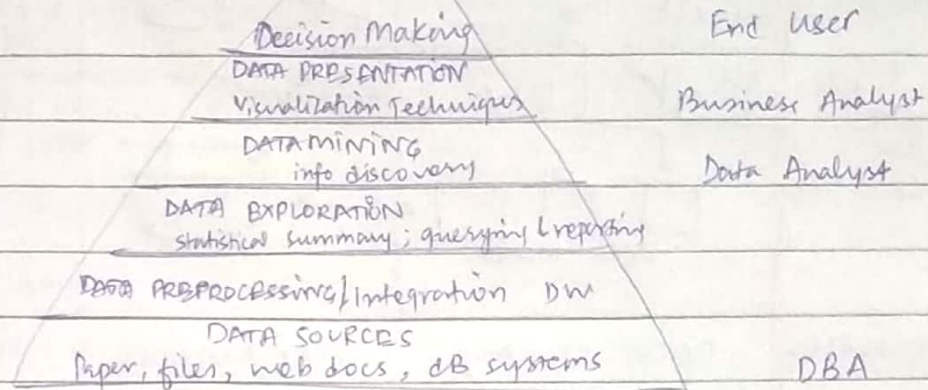 Decision Making End User
DATA PRESENTATION
Visualization Techniques Business Analyst
DATA MINING
info discovery Data Analyst
DATA EXPLORATION
statistical summary; querying & reporting
DATA PREPROCESSING/Integration DW
DATA SOURCES
Paper, files, web docs, dB systems DBA